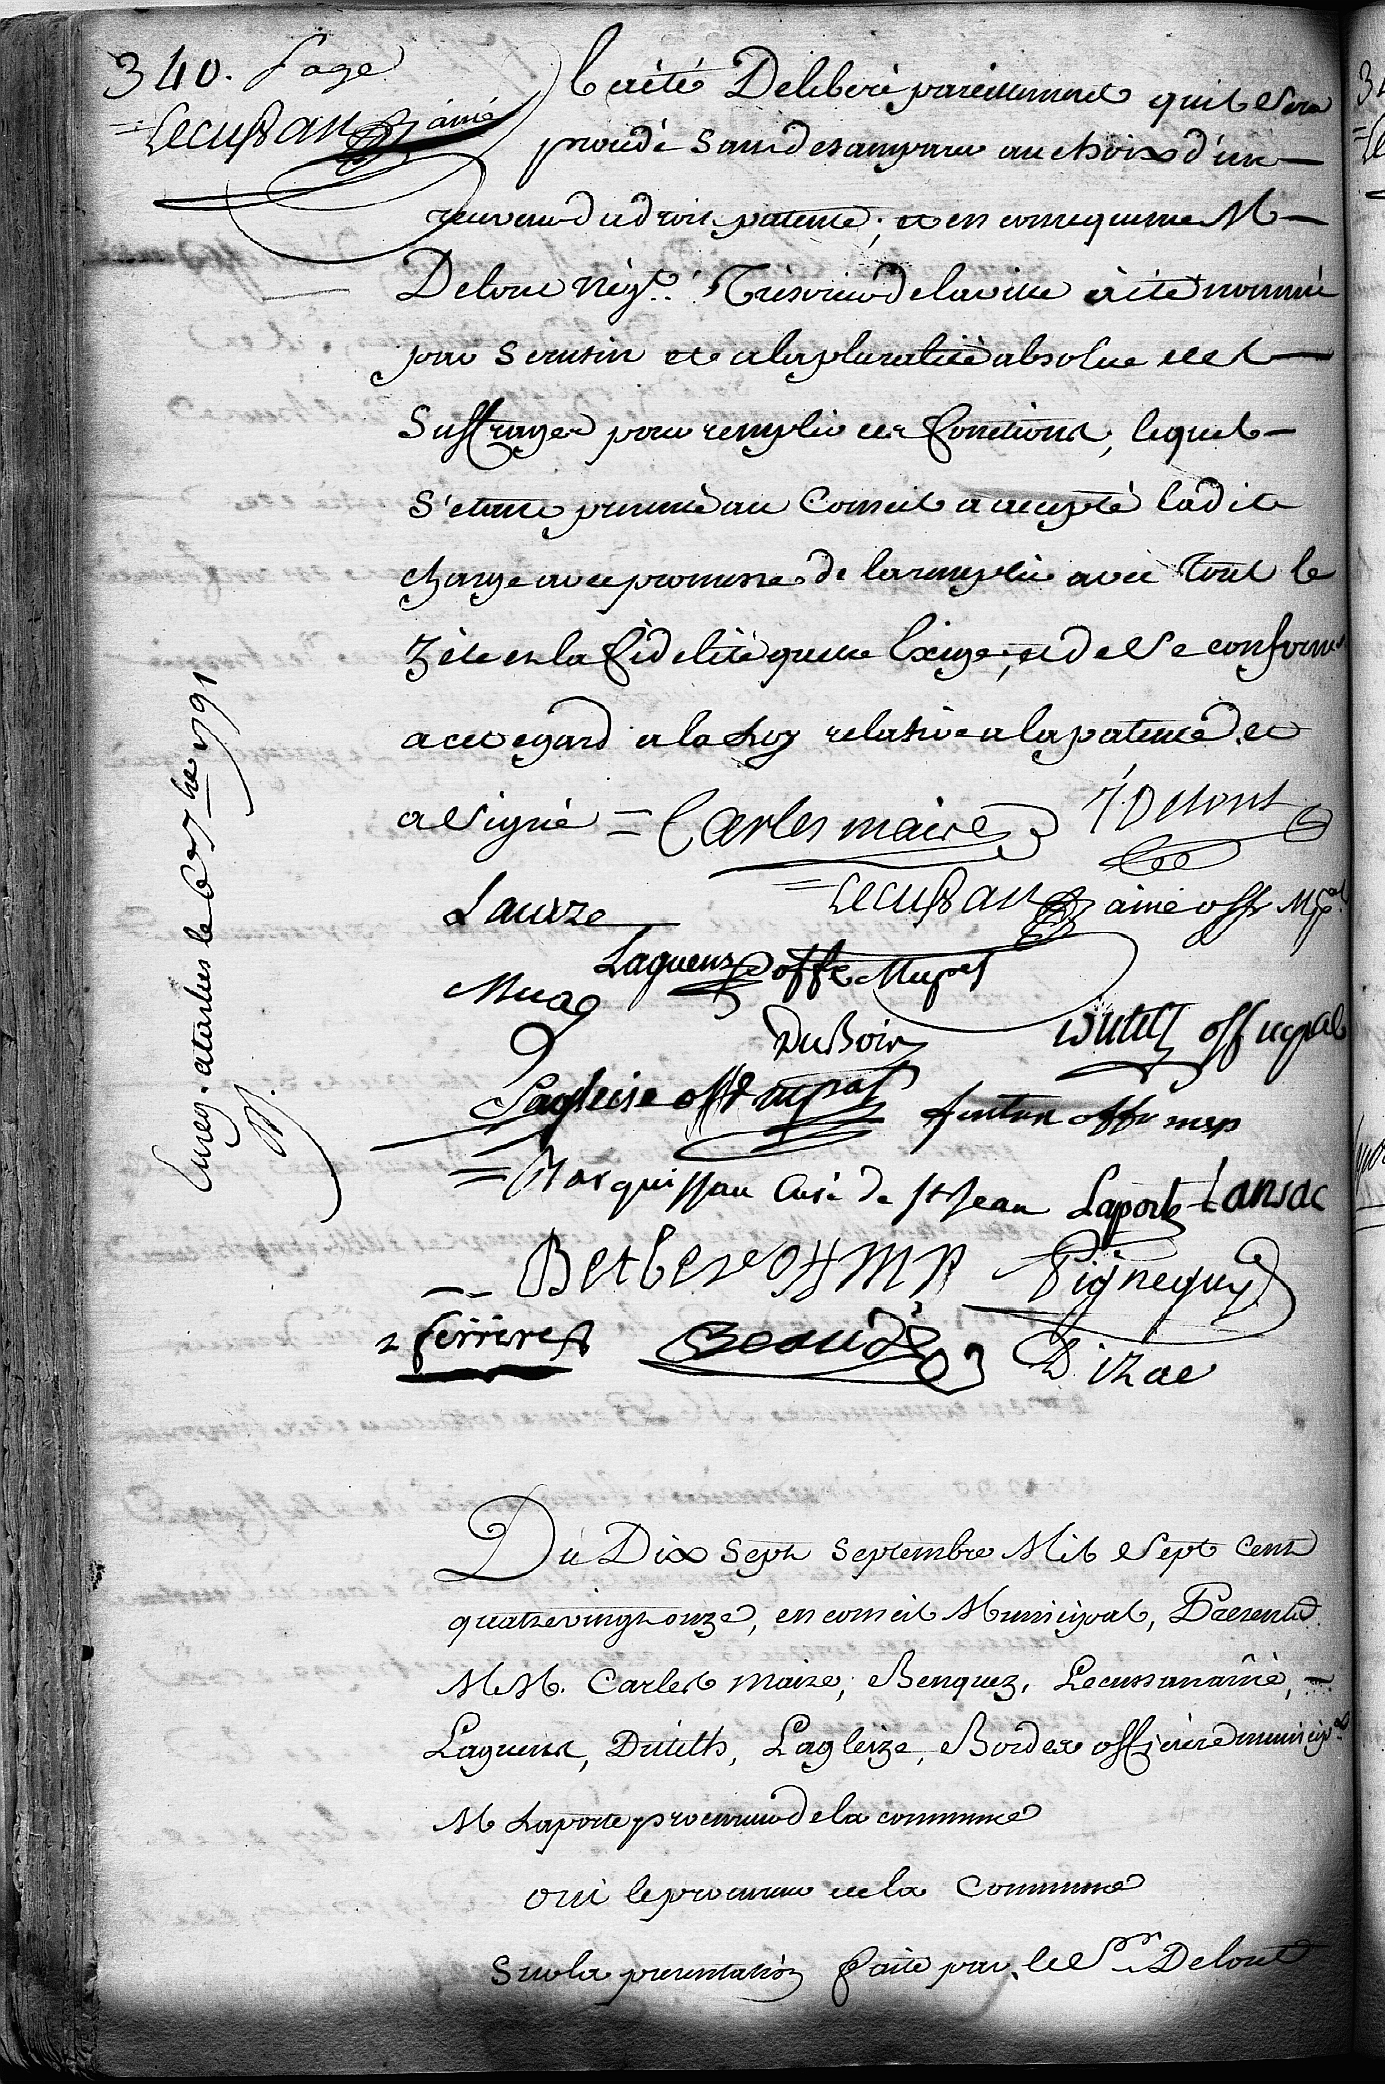 340. Page
Lecussan ainé
Il a été Deliberé pareillement qu'il sera
procédé sans desamparer au choix d'un
receveur du droit patente; et en consequence M
Delort négt. Trésorier de la ville a été nommé
par Scrutin et a la pluralité absolue des
Suffrages pour remplir ces fonctions, lequel
S'étant presenté au Conseil a accepté ladite
charge avec promesse de la remplir avec tout le
Zèle et la fidelité quelle Exige, et de se conformer
a cet egard a la Loy relative a la patente et
a signé = Carles maire Delort
Lecussan ainé offr Mpal
Lauze
Laguens offr Mupal
Duboix
Dutilh off mupal
Lagleise offr mupal
offr mup
Marquissau Curé de st Jean Laporte Lansac
Bethese Pigneguy
ferrere
Dizac
Enreg. a tarbes le 6 07bre 1791
Du Dix Sept Septembre Mil Sept Cent
quatrevingt onze, en conseil Municipal, Presents
MM. Carles Maire, Benquez, Lecussan ainé,
Laguens, Dutilh, Lagleize, Bordes officiers municip.x
M Laporte procureur de la commune
oui le procureur de la Commune
Sur la presentation faite par le Sr. Delort